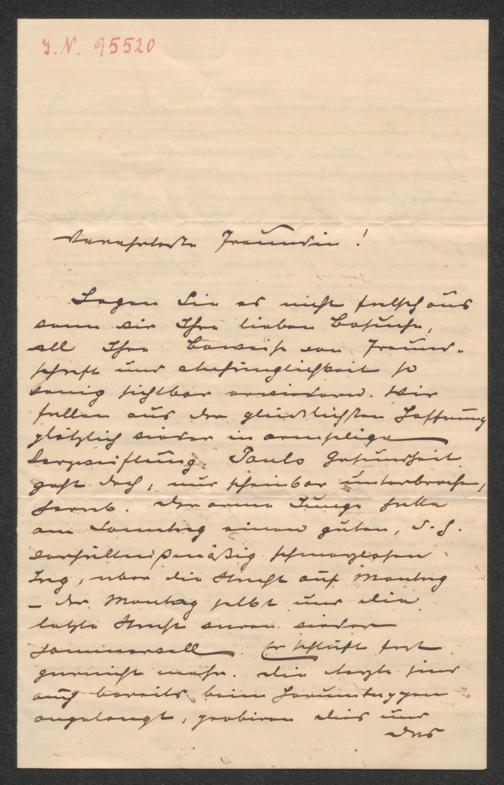 I.N. 95520
Verehrteste Freundin!
Legen Sie es nicht falsch aus
wenn wir Ihre lieben Besuche,
all Ihre Beweise von Freund-
schaft und Anhänglichkeit so
wenig sichtbar erwidern. Wir
fallen aus der glücklichsten Hoffnung
plötzlich wieder in armselige
Verzweiflung. Pauls Gesundheit
geht doch, nur scheinbar unterbrochen,
Der arme Junge hatte
am Sonntag einen guten, d.h.
verhältnißmäßig schmerzlosen
Tag, aber die Nacht auf Montag
– der Montag selbst und die
letzte Nacht waren wieder
jammervoll. Er schläft fast
garnicht mehr. Die Ärzte sind
auch bereits beim
angelangt, probiren dies und
das